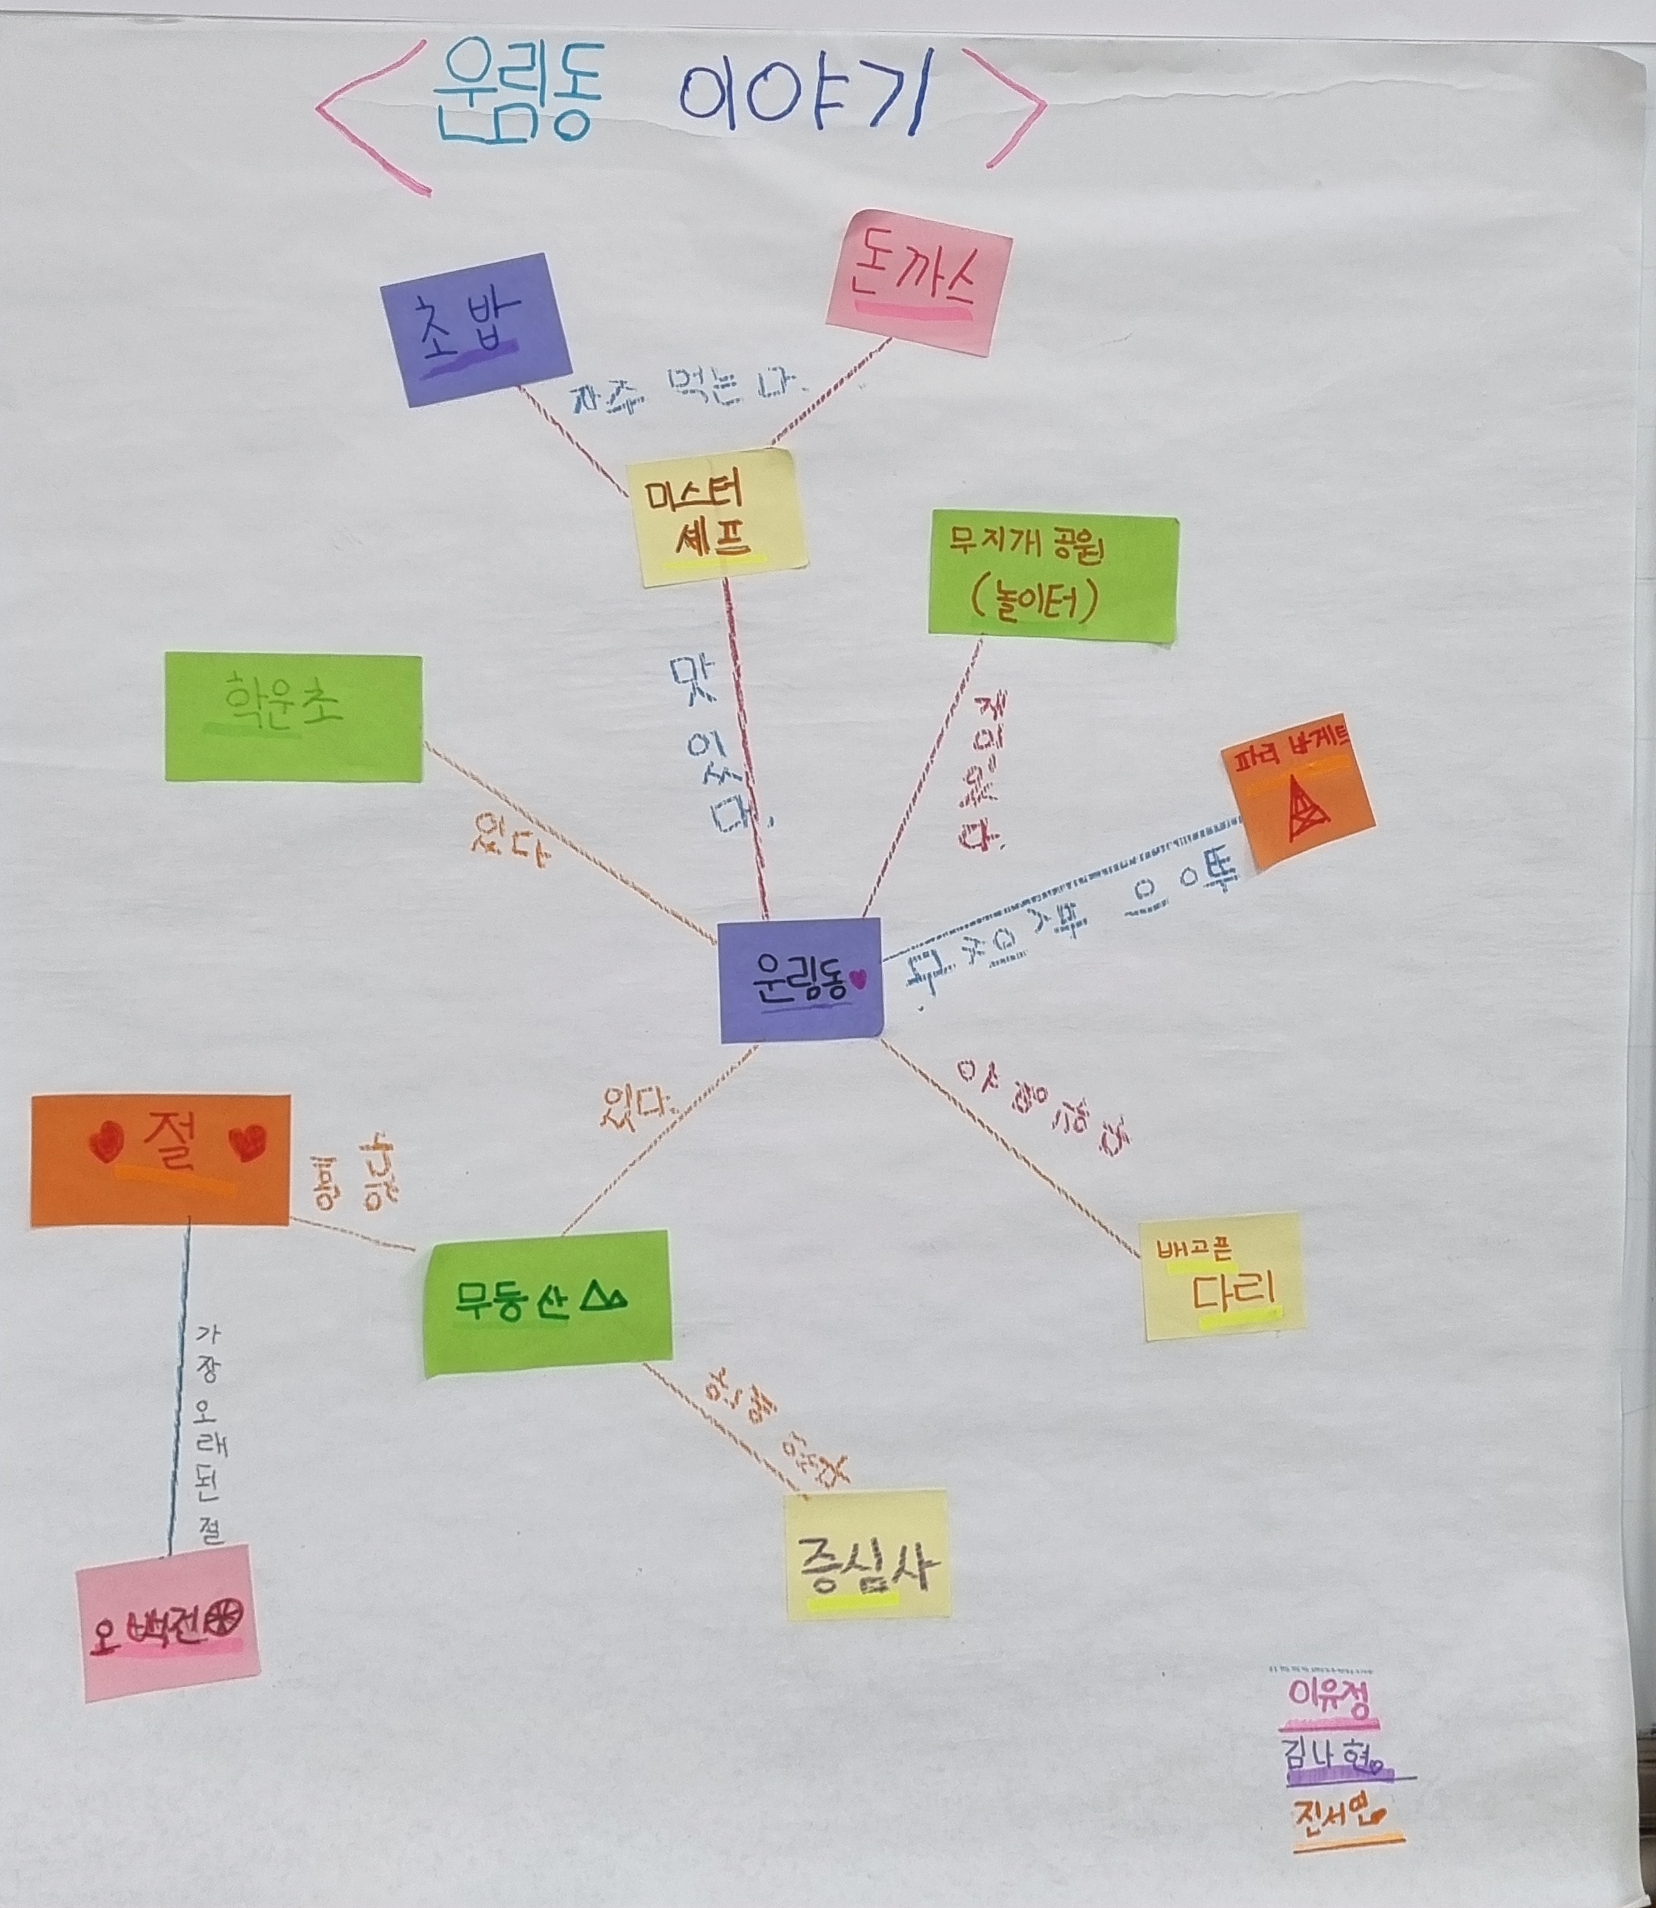 <운림동 이야기>
초밥
돈까스
자주 먹는다.
미스터
셰프
무지개 공원
(놀이터)
학운초
맛있다.
재미있다.
있다
파리 바게트
운림동
있다.
절
안에
있다
무등산
배고픈
다리
가장 오래된 절
증심사
오백전
이유정
김나현
진서연